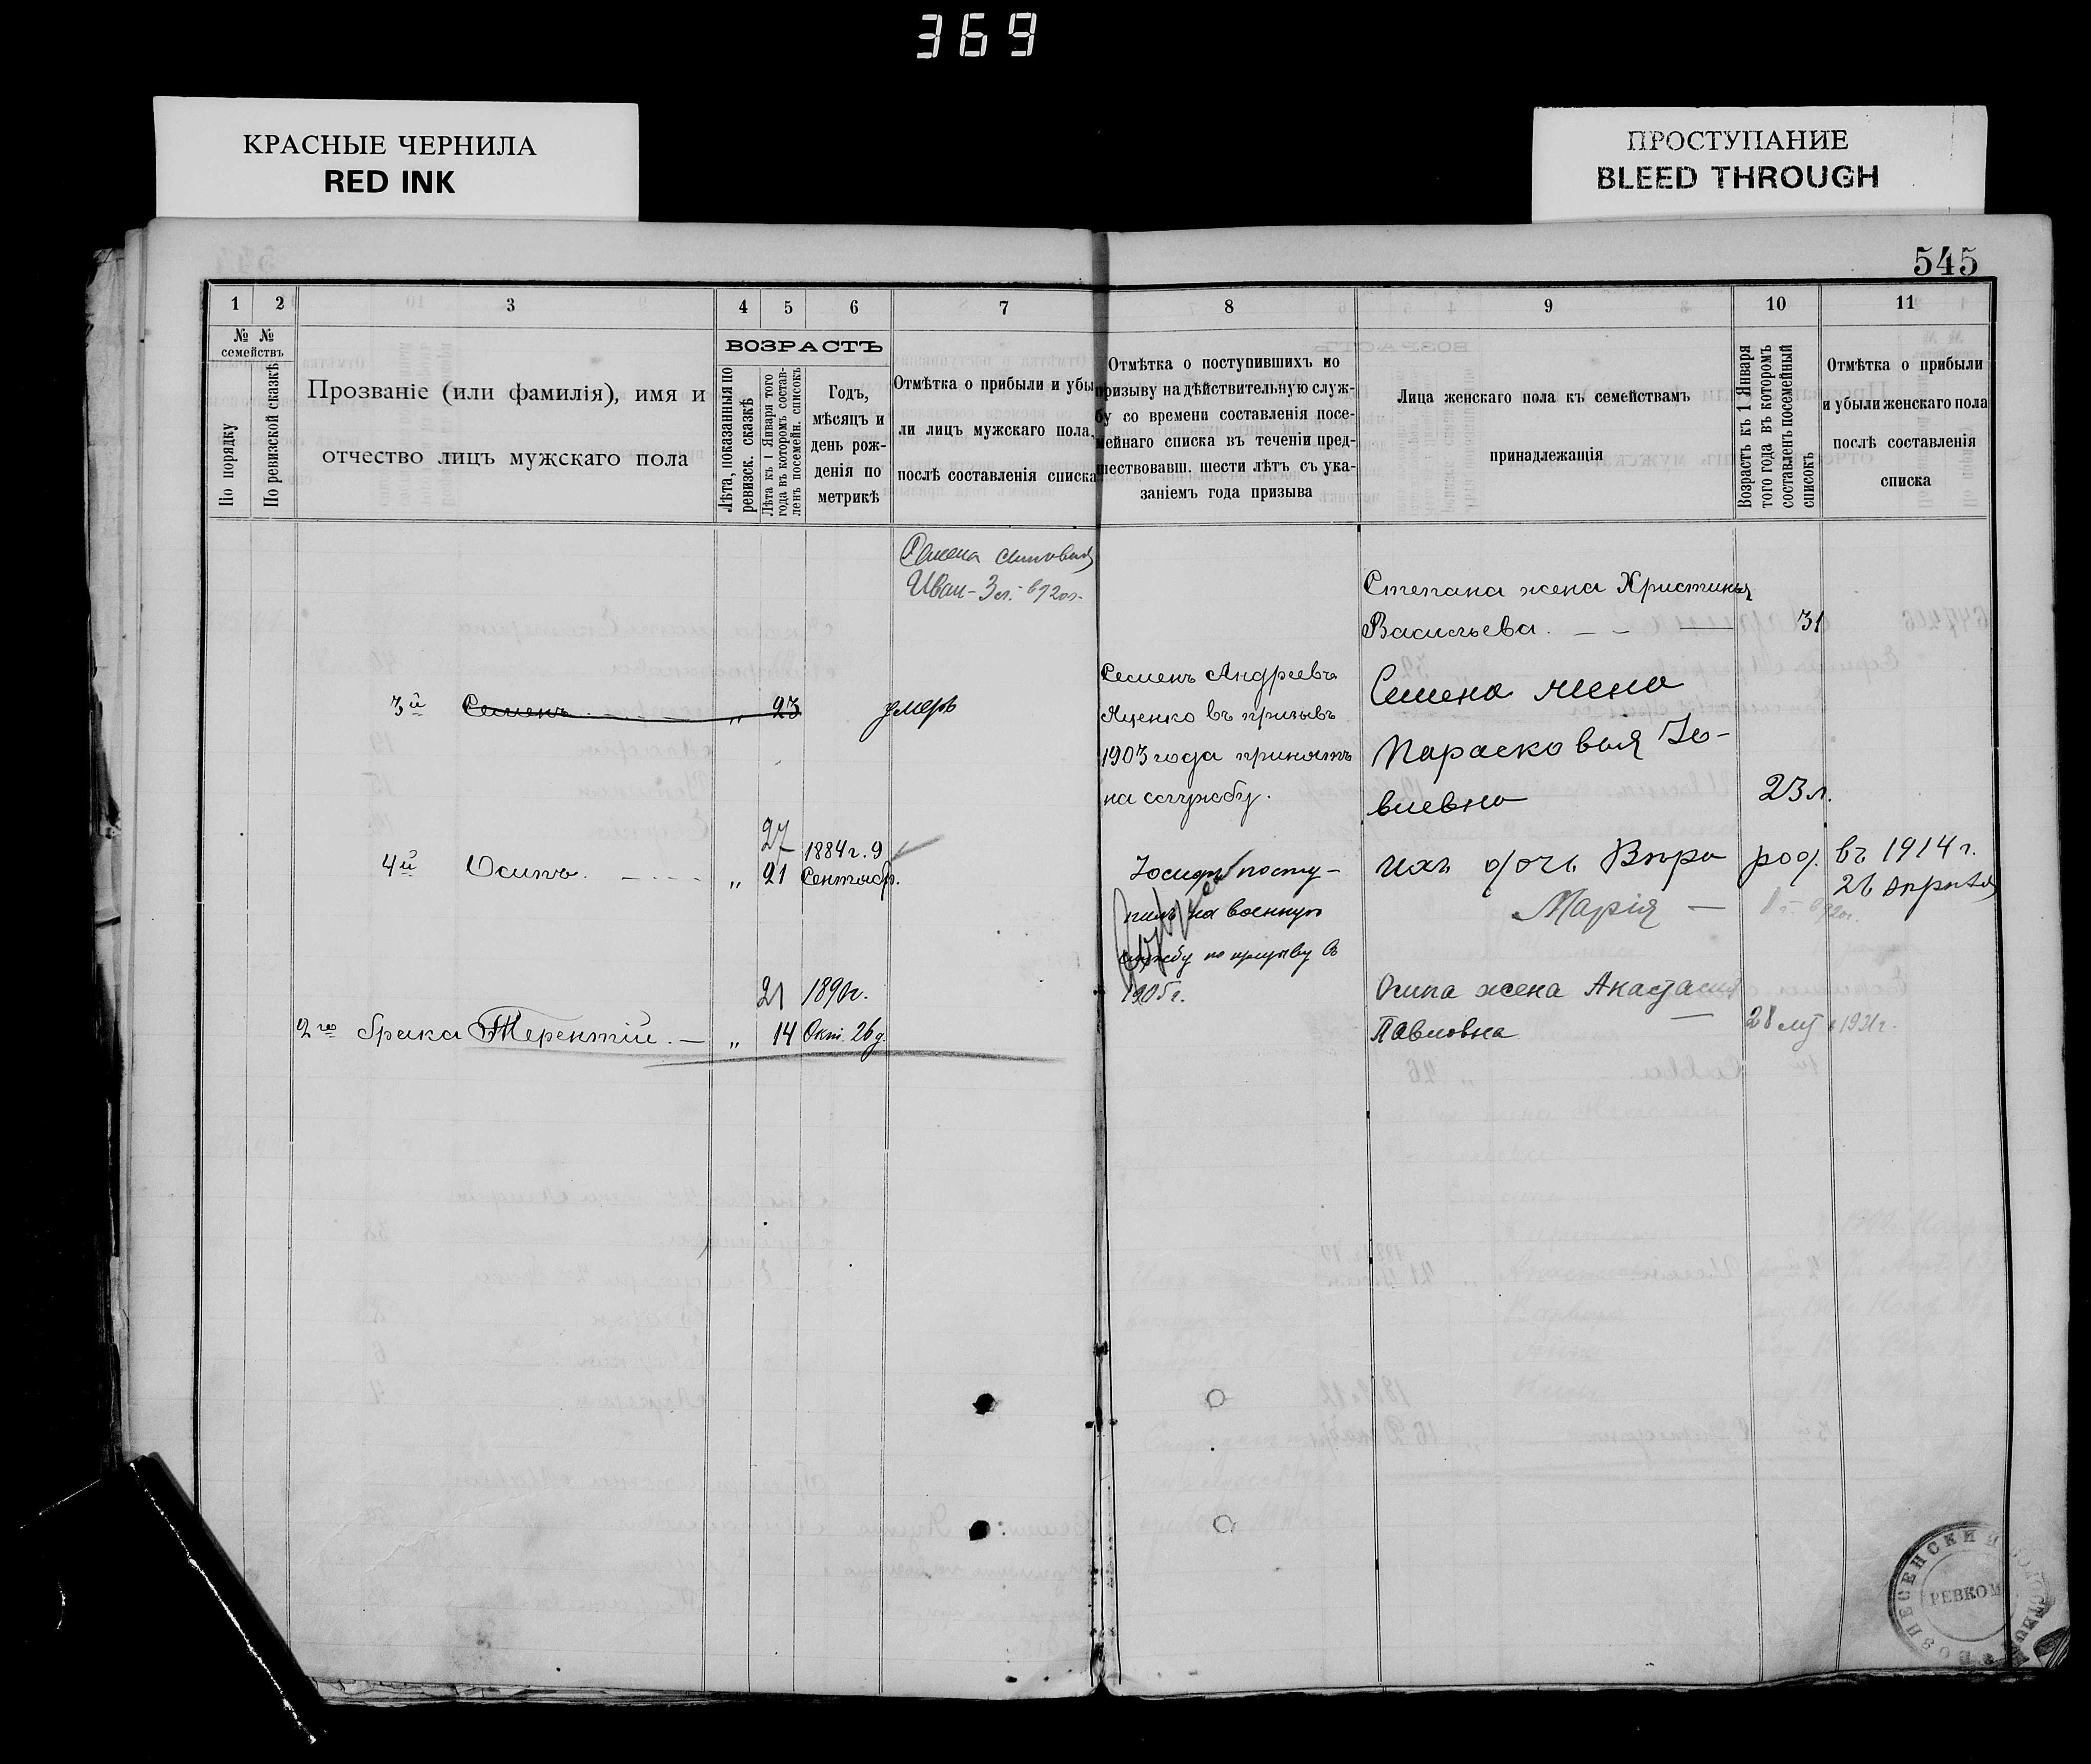 369
КРАСНЫЕ ЧЕРНИЛА
RED INK
ПРОСТУПАНИЕ
BLEED THROUGH
545
1 2 3 4 5 6 7 8 9 10 11
№ №
семействъ
По порядку
По ревизской сказкѣ
Прозваніе (или фамилія), имя и
отчество лицъ мужскаго пола
ВОЗРАСТЪ
Лѣта, показанныя по
ревизск. сказкѣ
Лѣта къ 1 Января того
года въ которомъ состав-
ленъ посемейн. списокъ
Годъ,
мѣсяцъ и
день рож-
денія по
метрикѣ
Отмѣтка о прибыли и убы
ли лицъ мужскаго пола,
послѣ составленія списка
Отмѣтка о поступившихъ по
призыву на дѣйствительную служ-
бу со времени составленія посе-
мейнаго списка въ теченіи пред-
шествовавш. шести лѣтъ съ ука-
заніемъ года призыва
Лица женскаго пола къ семействамъ
принадлежащія
Возрастъ къ 1 Января
того года въ которомъ
составленъ посемейный
списокъ
Отмѣтка о прибыли
и убыли женскаго пола
послѣ составленія
списка
Семена сыновья
Иван - 3 л. - в 920 г.
Степана жена Христинья
Васильева. 31
3й Семенъ " 23 умеръ
Семенъ Андреевъ
Яценко въ призывъ
1903 года принятъ
на службу.
Семена жена
Парасковья Іо-
виевна 23 л.
27 1884 г. 9
4й Осипъ. " 21 Сентябр.
Іосифъ посту-
пилъ на военную
службу по призыву в
1905 г.
ихъ дочь Вѣра род. въ 1914 г.
26 апрѣля
Марія — 1 г. в 920 г.
Осипа жена Анастасия
Павловна 28 лѣт в 1921 г.
21 1890 г.
2го брака Терентій. — " 14 Окт. 26 д.
РЕВКОМ